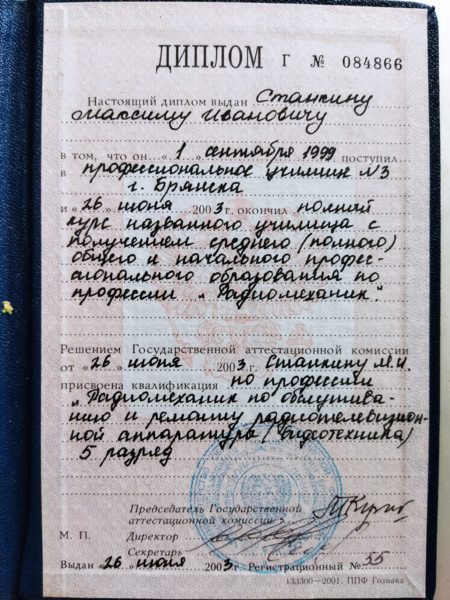 ДИПЛОМ Г № 084866
Настоящий диплом выдан Станкину
Максиму Ивановичу
в том, что он „ 1 „ сентября 1999 поступил
в профессиональное училище №3
г. Брянска
и „ 26 июня 2003 г. окончил полный
курс названного училища с
получением среднего (полного)
общего и начального профес-
сионального образования по
профессии „Радиомеханик".
Решением Государственной аттестационной комиссии
от „ 26 „ июня 2003 г. Станкину М.И.
присвоена квалификация по профессии
„Радиомеханик по обслужива-
нию и ремонту радиотелевизион-
ной аппаратуры (видеотехника)
5 разряд
Председатель Государственной
аттестационной комиссии
М. П. Директор
Секретарь
Выдан „ 26 „ июня 2003 г. Регистрационный № 55
133300—2001. ППФ Гознака.